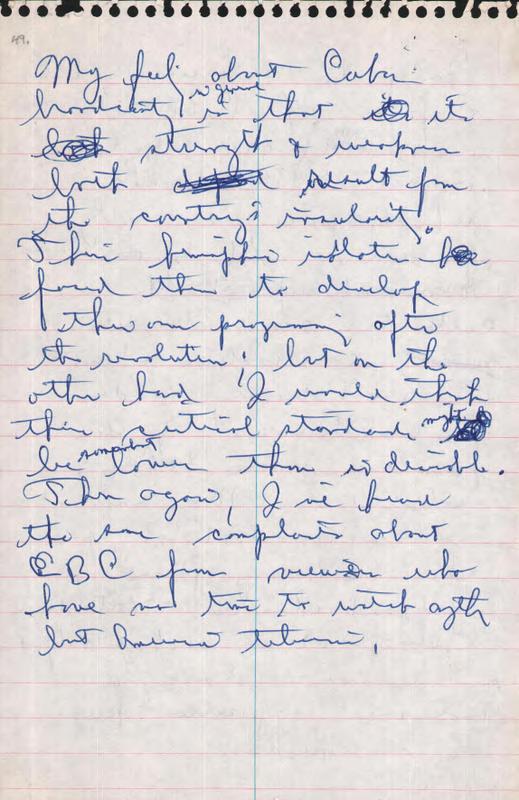 49.
My feel about Cuban
broadcasting in general is that its
strength & weakness
both result from
the country's insularity.
Their isolation
forced them to develop
their own programing after
the revolution; but on the
other hand I would think
their critical standards might
be somewhat lower than is desirable.
Then again, I've heard
the same complaints about
CBC from viewers who
have no time to watch anything
but American television.